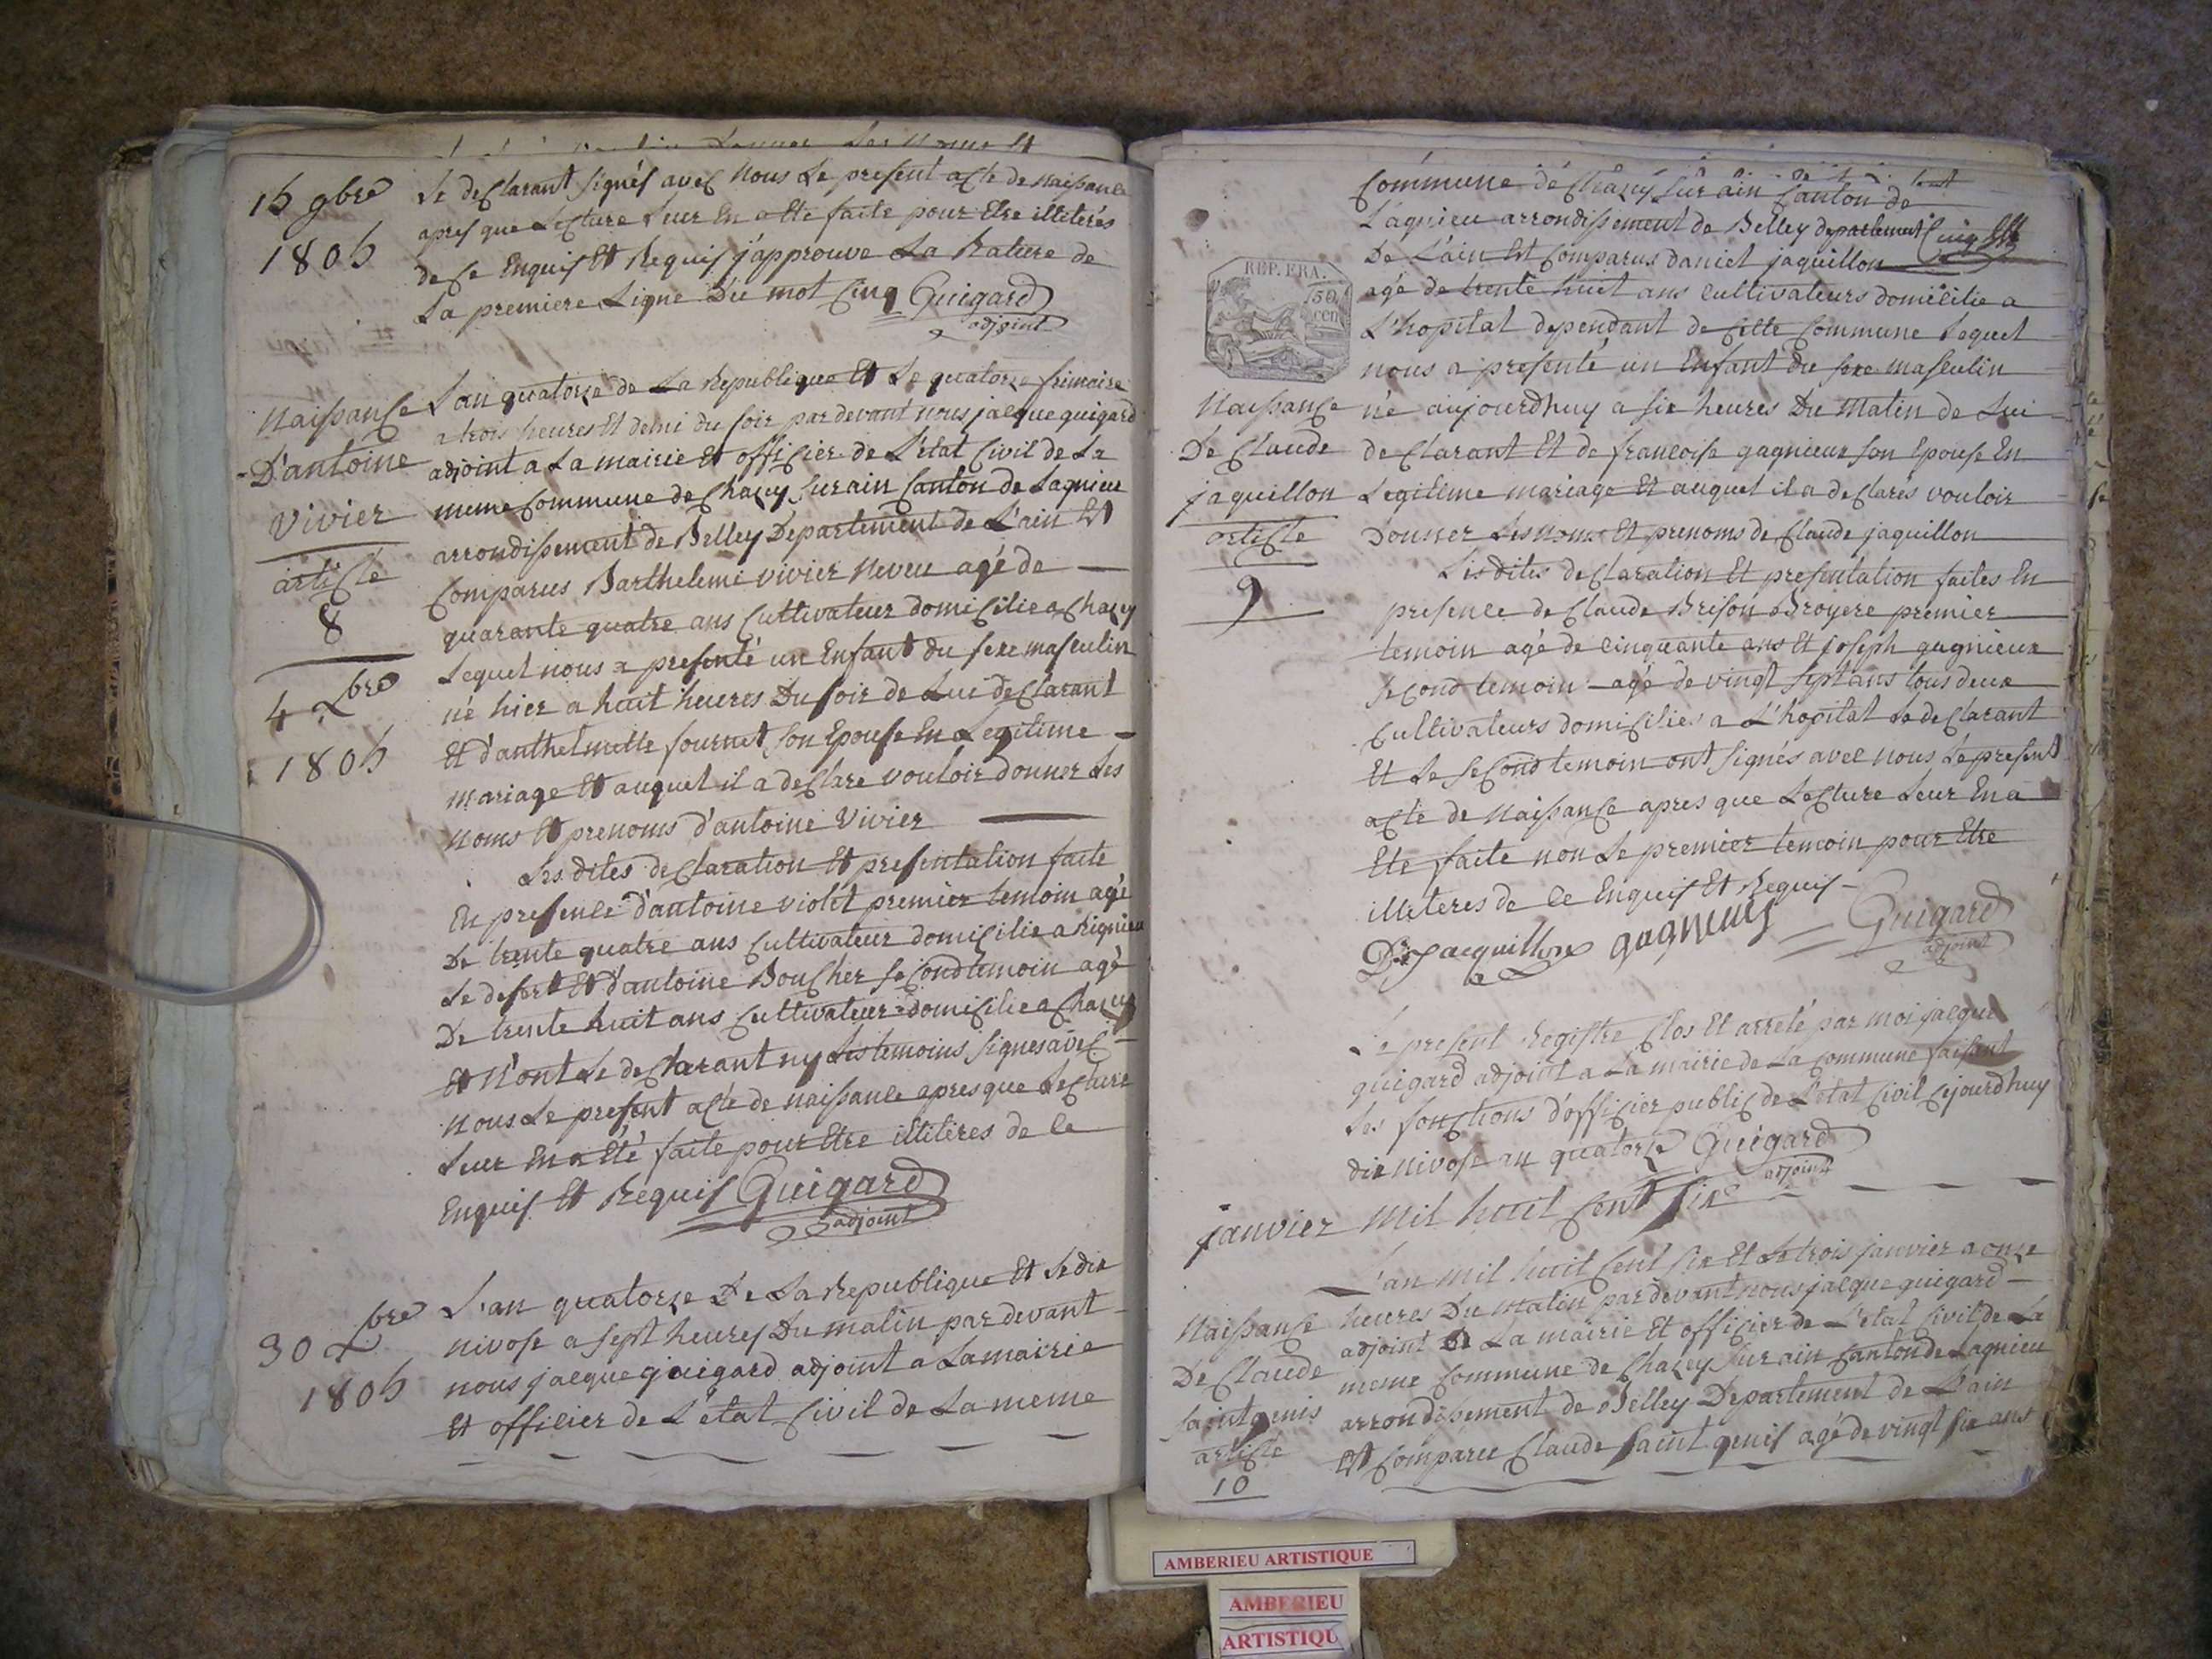 15 9bre
1805
Le declarant signés avec nous Le present acte de naissance
apres que Lecture Leur En a été faite pour Etre illiterés
de Ce Enquis Et Requis j'approuve La Rature de
La premiere Ligne Du mot Cinq Guigard
adjoint
Naissance
D'antoine
Vivier
article
8
4 Xbre
1805
L'an quatorze de La Republique Et Le quatorze frimaire
a trois heures Et demi du soir par devant nous jacque guigard
adjoint a La mairie Et officier de L'etat Civil de La
meme Commune de Chazey Sur ain Canton de Lagnieu
arrondissement de Belley Departement de L'ain Est
Comparus Barthelemi vivier Neveu agé de
quarante quatre ans Cultivateur domicilie a Chazey
Lequel nous a presenté un Enfant du sexe masculin
né hier a huit heures Du soir de Lui declarant
Et d'anthelmette fournet son Epouse En Legitime
mariage Et auquel il a declare vouloir donner Les
noms Et prenoms d'antoine Vivier
Les dites declaration Et presentation faite
En presence d'antoine violet premier temoin agé
De trente quatre ans Cultivateur domicilie a Rignieu
Le desert Et d'antoine Boucher second temoin agé
De trente huit ans Cultivateur domicilie a Chazey
Et N'ont Le declarant ny Les temoins signes avec
nous Le present acte de naissance apres que Lecture
Leur En a Eté faite pour Etre illiteres de Ce
Enquis Et Requis Guigard
adjoint
30 Xbre
1805
L'an quatorze De La Republique Et Le dix
nivose a sept heures Du matin par devant
nous jacque guigard adjoint a La mairie
Et officier de L'état Civil de La meme
Commune de Chazey Sur ain Canton de
Lagnieu arrondissement de Belley departement
De L'ain Est Comparus daniel jaquillon
REP. FRA.
50
cen
agé de trente huit ans Cultivateurs domicilie a
L'hopital dependant de Cette Commune Lequel
nous a presenté un Enfant du sexe masculin
Naissance
De Claude
jaquillon
article
9
né aujourdhuy a six heures Du matin de Lui
declarant Et de francoise gagnieux son Epouse En
Legitime mariage Et auquel il a declarés vouloir
Donner Les noms Et prenoms de Claude jaquillon
Lesdites declaration Et presentation faites En
presence de Claude Brison Broyere premier
temoin agé de cinquante ans Et joseph gagnieux
second temoin agé de vingt sept ans tous deux
Cultivateurs domicilies a L'hopital Le declarant
Et Le second temoin ont signés avec nous Le present
acte de Naissance apres que Lecture Leur En a
Eté faite non Le premier temoin pour Etre
illiteres de Ce Enquis Et Requis
Jacquillon gagneux Guigard
adjoint
Le present Registre Clos Et arreté par moi jacque
guigard adjoint a La mairie de La Commune faisant
Les fonctions d'officier public de L'etat Civil Cejourdhuy
dix nivose an quatorze Guigard
adjoint
janvier Mil huit Cent Six
Naissance
De Claude
saint genis
article
10
L'an Mil huit Cent six Et Le trois janvier a onze
heures Du matin par devant nous jacque guigard
adjoint a La mairie Et officier de L'etat Civil de La
meme Commune de Chazey Sur ain Canton de Lagnieu
arrondissement de Belley Departement de L'ain
Est Comparu Claude saint genis agé de vingt six ans
AMBERIEU ARTISTIQUE
AMBERIEU
ARTISTIQU